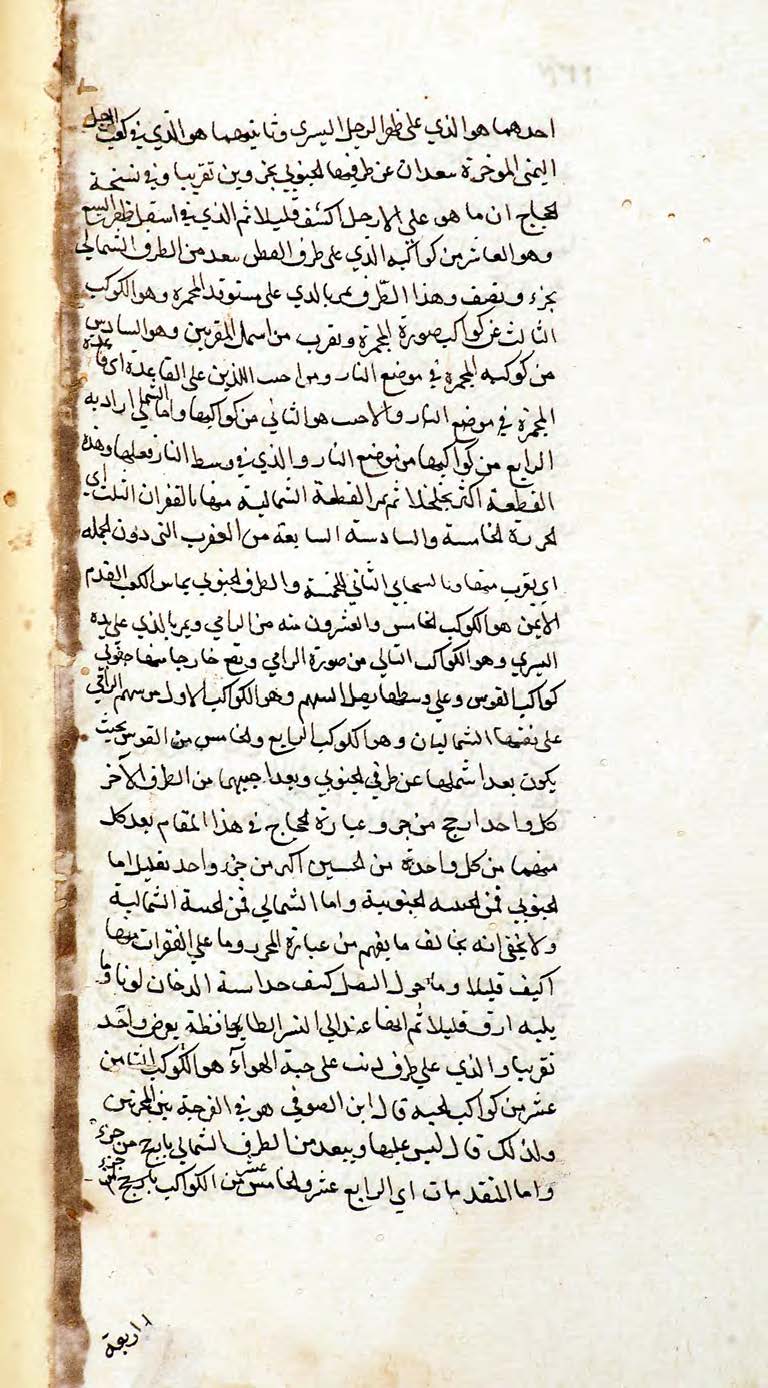 احدهما هو الذي على ظهر الرجل اليسرى وثانيهما هو الذي في كعب الرجل
اليمنى الموخرة سعدان عن طرفيها الجنوبي بجزوين تقريبا وفي نسخة
الحجاج ان ما هو على الارجل اكثف قليلا ثم الذي في اسفل ظهر السبع
وهو العاشر من كواكبه الذي على طرف القطن سعد من الطرف الشمالي
بجزء ونصف وهذا الطرف يمر بالذي على مستوقد المجمرة وهو الكوكب
الثالث من كواكب صورة المجمرة ويقرب من اسمل المقربين وهو السادس
من كوكبه المجمرة في موضع النار ومن احب اللذين على القاعدة اى قاعدة
المجمرة في موضع النار والاحب هو الثاني من كواكبها واما الشملي اراد به
الرابع من كواكبها من موضع النار والذي في وسط النار فعليها وهذه
القطعة اكثر تخلخلا ثم يمر القطعة الشمالية منها بالفقرات الثلث اى
الخرزة الخامسة والسادسة السابعة من العقرب التى دون الجمله
اى يقرب منها وبالسحابي الثاني للحمة والطرف الجنوبي يماس الكعب القدم
الايمن هو الكوكب الخامس والعشرون منه من الرامي ويمر بالذي على يده
اليسرى وهو الكوكب الثاني من صورة الرامي ويقع خارجا منها جنوبي
كواكب القوس وعلى وسطها نصل السهم وهو الكوكب الاول من سهم الرامي
على نفيها الشماليان وهو الكوكب الرابع والخامس من القوس بحيث
يكون بعد اشملها عن طرفي الجنوبي وبعد اجنبهما من الطرف الآخر
كل واحد ارجح من جزو عبارة الحجاج في هذا المقام بعد كل
منهما من كل واحدة من الحسين اكبر من جزء واحد بقليل اما
الجنوبي فمن الحسه الجنوبية واما الشمالي فمن الحسة الشمالية
ولا يخفى انه يخالف ما يفهم من عبارة المحرر وما على الفقرات منها
اكيف قليلا وما حول النصل كيف حداسة الدخان لونا وما
يليه ارق قليلا ثم ايضا عند الى النسر الطاير بحافظة بعرض واحد
تقريبا والذي على طرف ذنب على حبة الهواء هو الكوكب الثامن
عشر من كواكب الحية قال ابن الصوفي هو في الفرجة بين المجرتين
ولذلك قال ليس عليها ويبعد من الطرف الشمالي بارجح من جزء
واما المتقدمات اى الرابع عشر والخامس عشر من الكواكب بارجح من جزء
اربعة